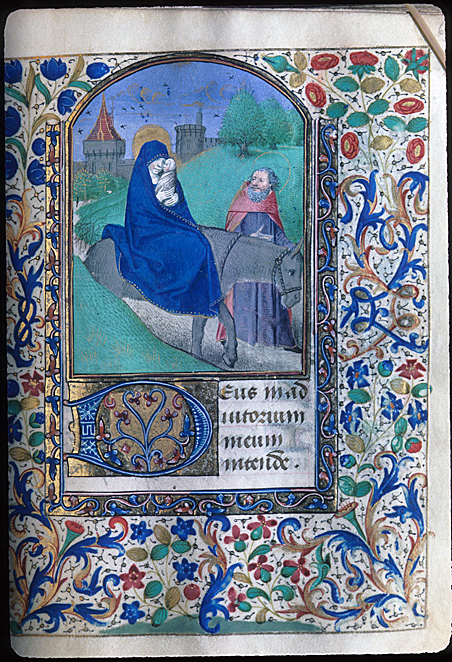 Deus in ad
iutorium
meum
intende.